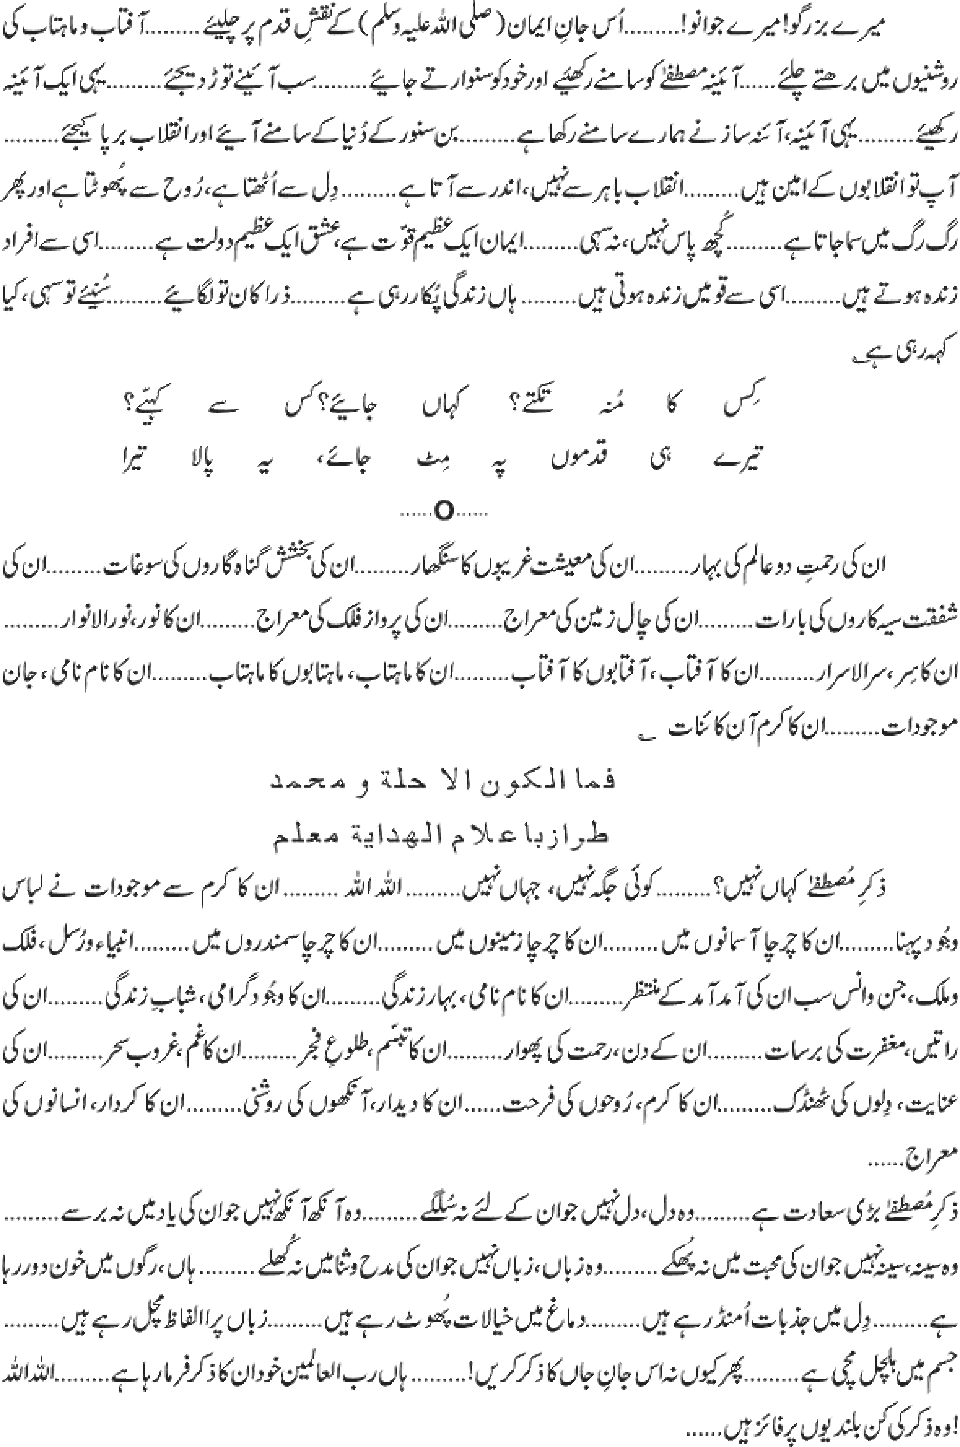 میرے بزرگو! میرے جوانو!.........اُس جانِ ایمان (صلی اللہ علیہ وسلم) کے نقشِ قدم پر چلیئے.........آفتاب و ماہتاب کی
روشنیوں میں بڑھتے چلئے......آئینہ مصطفےٰ کو سامنے رکھئیے اور خود کو سنوارتے جائیے.........سب آئینے توڑ دیجئے.........یہی ایک آئینہ
رکھیئے.........یہی آئینہ، آئنہ ساز نے ہمارے سامنے رکھا ہے.........بن سنور کے دُنیا کے سامنے آیئے اور انقلاب برپا کیجئے.........
آپ تو انقلابوں کے امین ہیں.........انقلاب باہر سے نہیں، اندر سے آتا ہے.........دِل سے اُٹھتا ہے، رُوح سے پُھوٹتا ہے اور پھر
رگ رگ میں سما جاتا ہے.........کُچھ پاس نہیں، نہ سہی.........ایمان ایک عظیم قوّت ہے، عشق ایک عظیم دولت ہے.........اسی سے افراد
زندہ ہوتے ہیں.........اسی سے قومیں زندہ ہوتی ہیں.........ہاں زندگی پُکار رہی ہے.........ذرا کان تو لگائیے.........سُنیئے تو سہی، کیا
کہہ رہی ہے؂
کِس کا مُنہ تکئے؟ کہاں جایئے؟ کس سے کہیّے؟
تیرے ہی قدموں پہ مِٹ جائے، یہ پالا تیرا
......O......
ان کی رحمتِ دو عالم کی بہار.........ان کی معیشت غریبوں کا سنگھار.........ان کی بخشش گناہ گاروں کی سوغات.........ان کی
شفقت سیہ کاروں کی بارات.........ان کی چال زمین کی معراج.........ان کی پرواز فلک کی معراج.........ان کا نور، نورالانوار.........
ان کا سِر، سرالاسرار.........ان کا آفتاب، آفتابوں کا آفتاب.........ان کا ماہتاب، ماہتابوں کا ماہتاب.........ان کا نام نامی، جان
موجودات.........ان کا کرم آن کائنات ؂
فما الکون الا حلة و محمد
طراز باعلام الهدایة معلم
ذکرِ مُصطفےٰ کہاں نہیں؟.........کوئی جگہ نہیں، جہاں نہیں.........اللہ اللہ.........ان کا کرم سے موجودات نے لباس
وجُود پہنا.........ان کا چرچا آسمانوں میں.........ان کا چرچا زمینوں میں.........ان کا چرچا سمندروں میں.........انبیاء و رُسل، فلک
و ملک، جن و انس سب ان کی آمد آمد کے منتظر.........ان کا نام نامی، بہار زندگی.........ان کا وجُود گرامی، شبابِ زندگی.........ان کی
راتیں، مغفرت کی برسات.........ان کے دن، رحمت کی پھوار.........ان کا تبسّم، طلوعِ فجر.........ان کا غم، غروب سحر.........ان کی
عنایت، دِلوں کی ٹھنڈک.........ان کا کرم، رُوحوں کی فرحت......ان کا دیدار، آنکھوں کی روشنی.........ان کا کردار، انسانوں کی
معراج......
ذکرِ مُصطفےٰ بڑی سعادت ہے.........وہ دل، دل نہیں جو ان کے لئے نہ سُلگے.........وہ آنکھ آنکھ نہیں جو ان کی یاد میں نہ برسے.........
وہ سینہ، سینہ نہیں جو ان کی محبت میں نہ پُھکے.........وہ زباں، زباں نہیں جو ان کی مدح و ثنا میں نہ کُھلے.........ہاں، رگوں میں خون دور رہا
ہے.........دِل میں جذبات اُمنڈ رہے ہیں.........دماغ میں خیالات پُھوٹ رہے ہیں.........زباں پر الفاظ مچل رہے ہیں.........
جسم میں ہلچل مچی ہے.........پھر کیوں نہ اس جانِ جاں کا ذکر کریں!.........ہاں رب العالمین خود ان کا ذکر فرما رہا ہے.........اللہ اللہ
!وہ ذکر کی کن بلندیوں پر فائز ہیں......